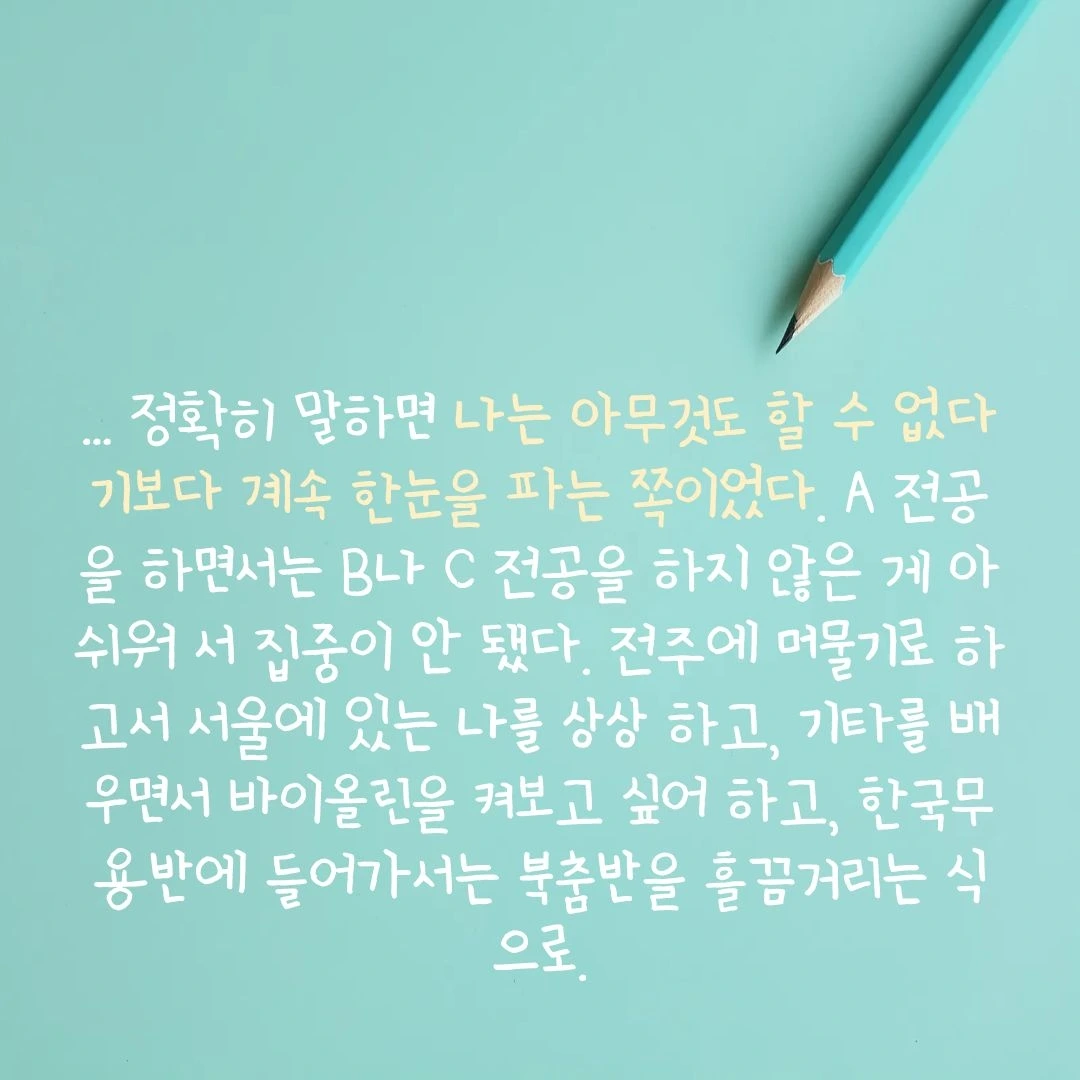 ... 정확히 말하면 나는 아무것도 할 수 없다
기보다 계속 한눈을 파는 쪽이었다. A 전공
을 하면서는 B나 C 전공을 하지 않은 게 아
쉬워 서 집중이 안 됐다. 전주에 머물기로 하
고서 서울에 있는 나를 상상 하고, 기타를 배
우면서 바이올린을 켜보고 싶어 하고, 한국무
용반에 들어가서는 북춤반을 흘끔거리는 식
으로.